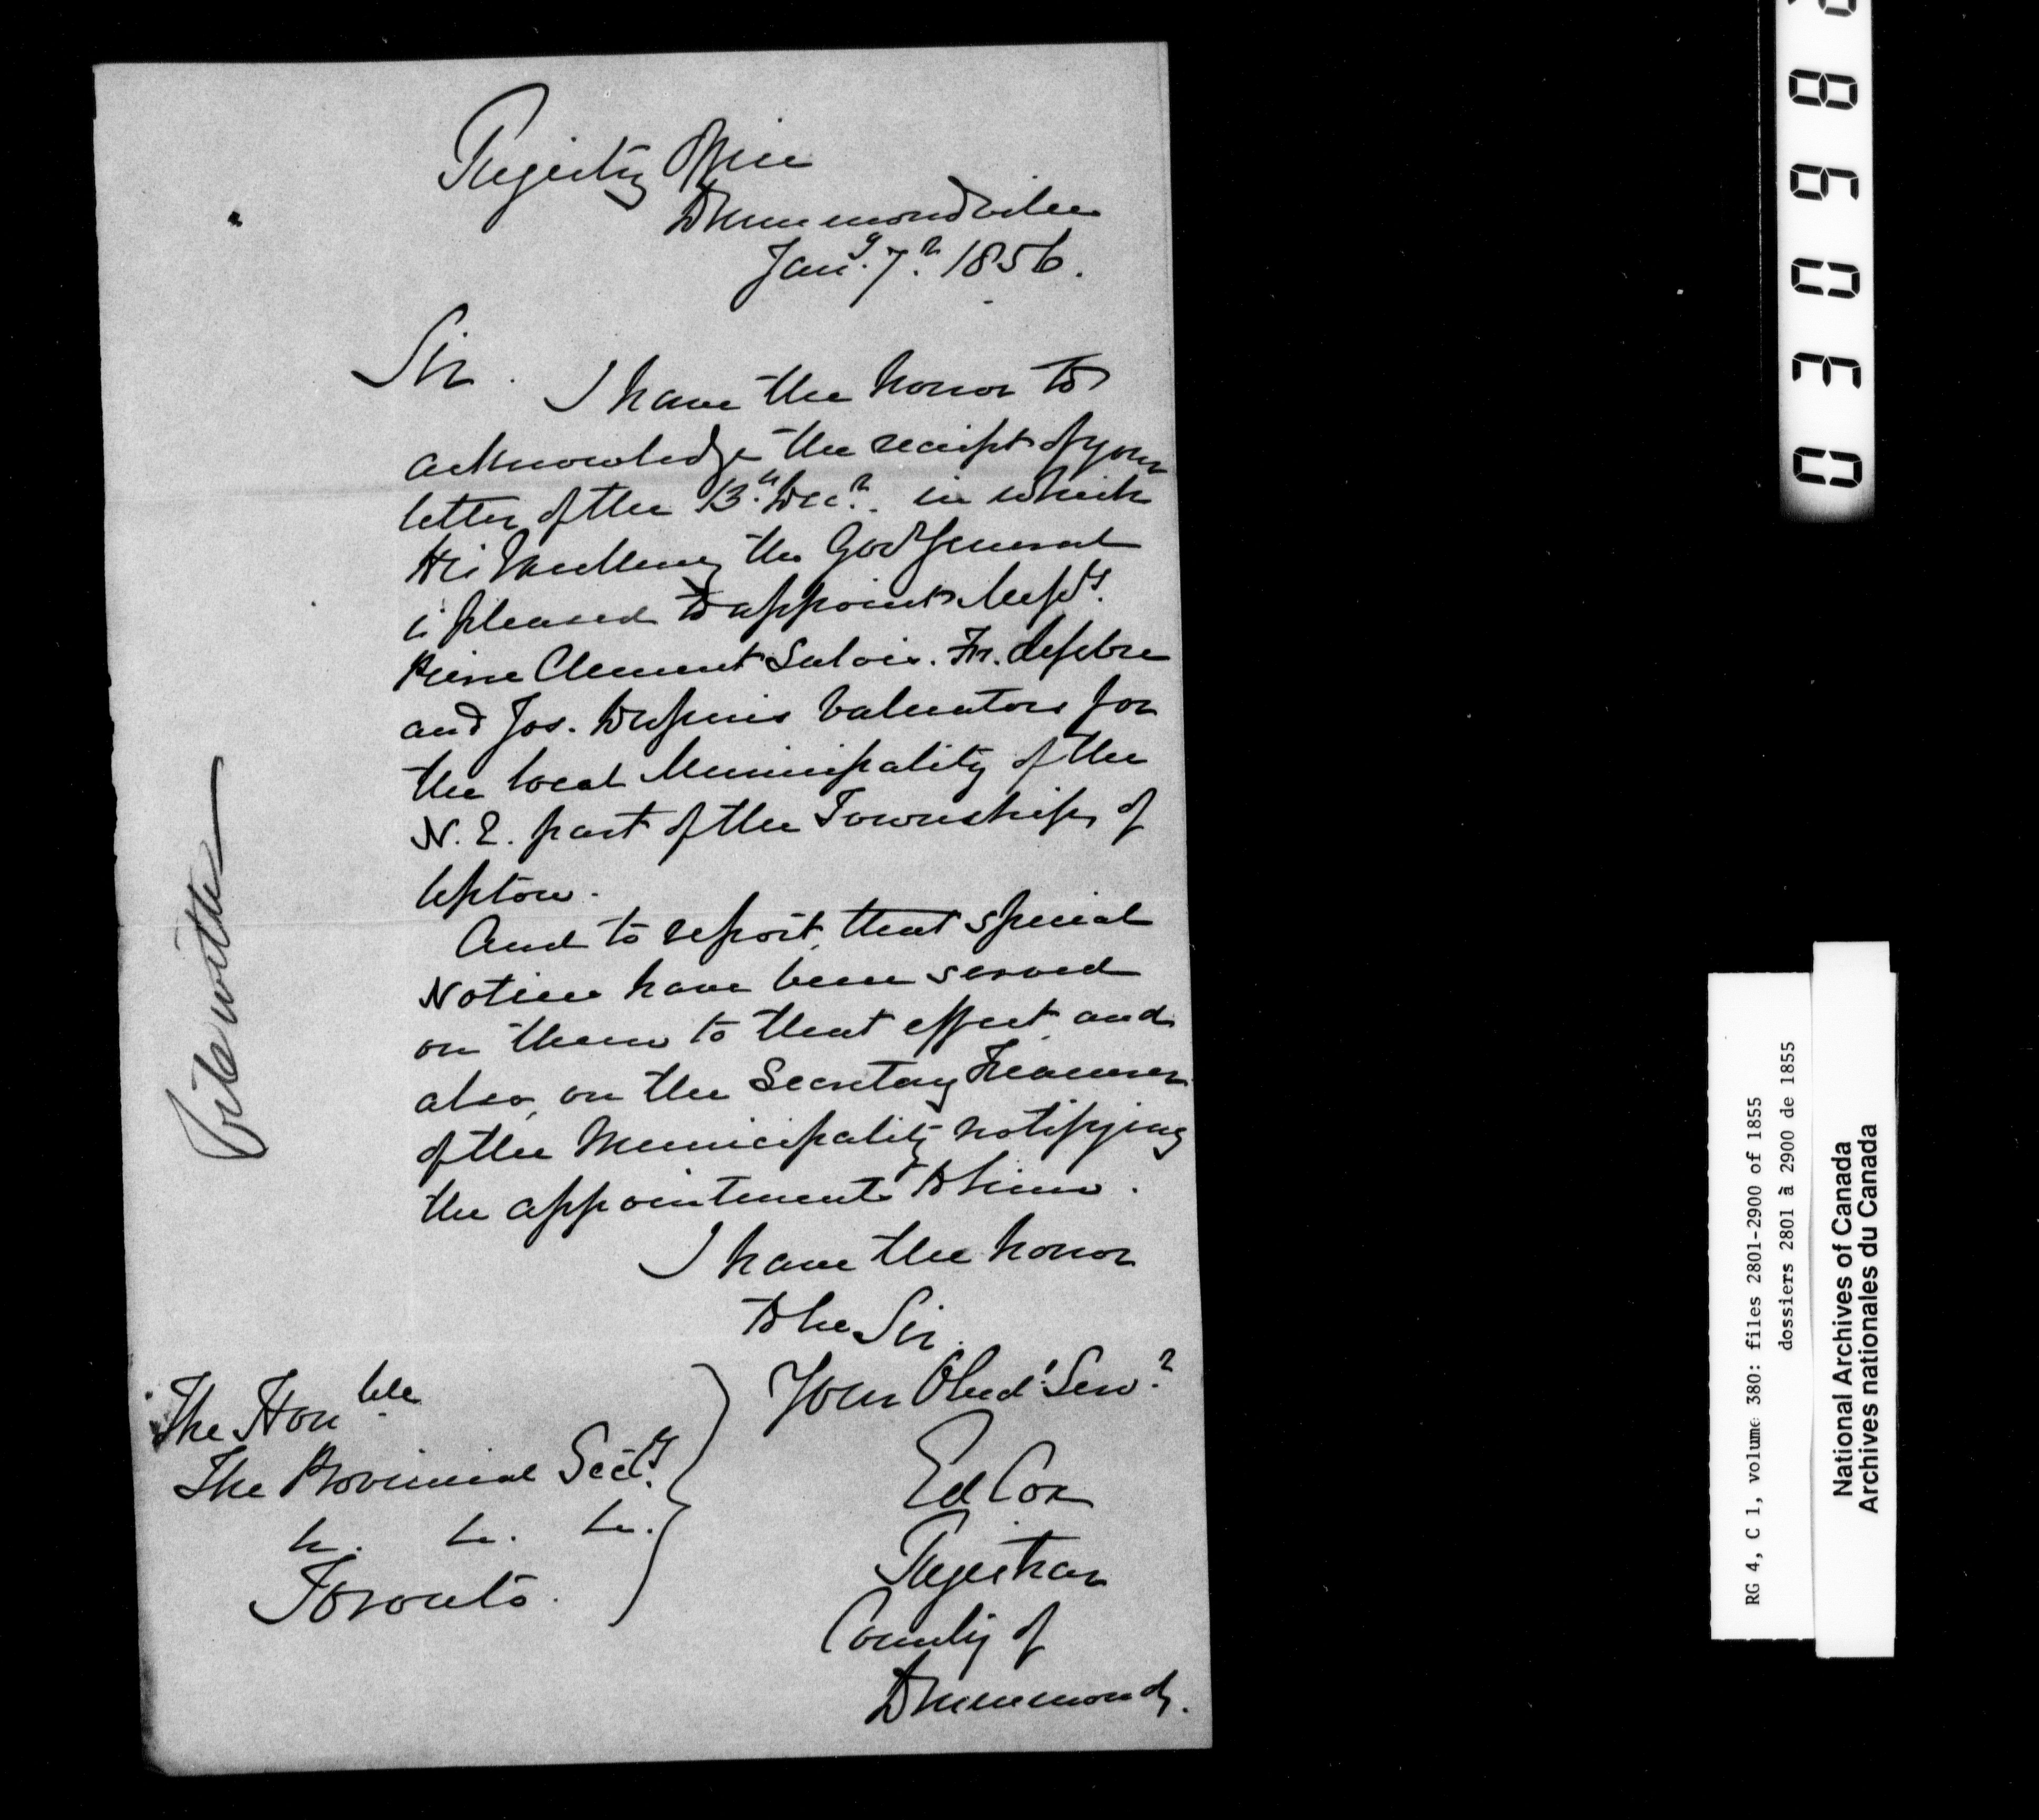 Registry Office
Drummondville
Jany. 7th 1856.
Sir. I have the honor to
acknowledge the receipt of your
letter of the 13th Decr. in which
His Excellency the Gov General
is pleased to appoint Messrs.
Pierre Clement Salois. Fr. Lefebre
and Jos. Dupuis Valuators for
the local Municipality of the
N. E. part of the Township of
Upton.
And to report, that special
Notices have been served
on them to that effect and
also, on the Secretary Treasurer
of the Municipality notifying
the appointment to him.
I have the honor
to be Sir.
Your Obedt. Servt.
Ed Cox
Registrar
County of
Drummond.
The Honble
The Provincial Secty.
&c. &c. &c.
Toronto.
03098
RG 4, C 1, volume 380: files 2801-2900 of 1855
dossiers 2801 à 2900 de 1855
National Archives of Canada
Archives nationales du Canada